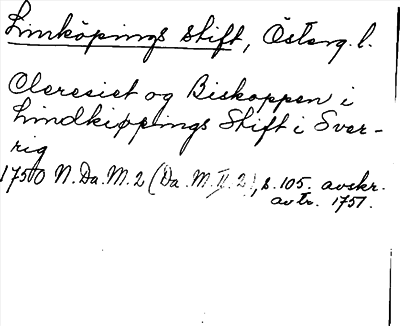 Linköpings stift, Österg. l.
Cleresiet og Biskoppen i
Lindkiøppings Stift i Sver-
rig
1750 N. Da. M. 2 (Da. M. II. 2), s. 105. avskr.
av tr. 1751.